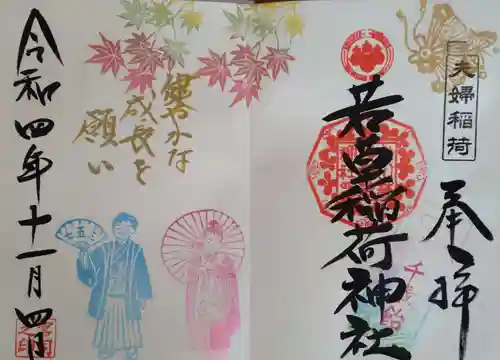 奉拝
夫婦稲荷
若草稲荷神社
千歳飴
健やかな
成長を
願い
七五三
令和四年十一月四日